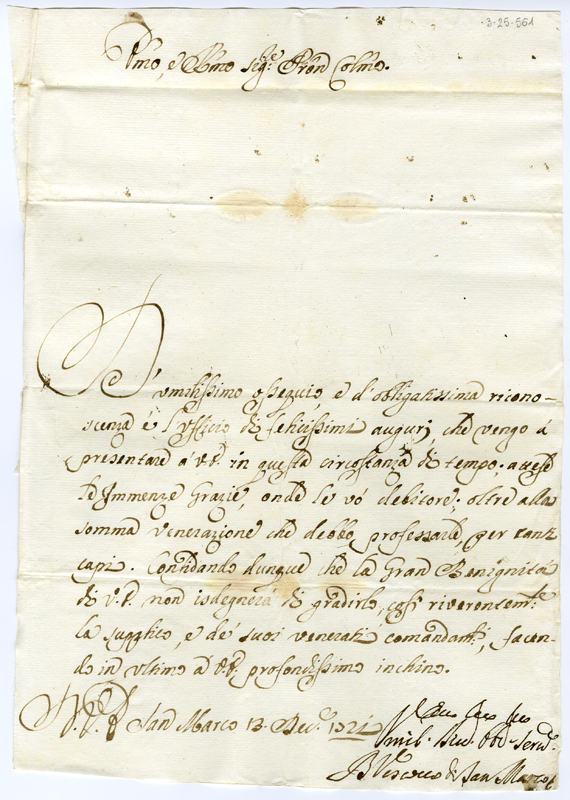 3-25-561
Illmo, e Rmo Sigre Pron Colmo.
D'umilissimo ossequio, e d'obligatissima ricono-
scenza è l'ufficio di felicissimi augurj, che vengo à
presentare à V.S. in questa circostanza di tempo. avese
te Immenze Grazie, onde le vò debitore; oltre alla
somma venerazione che debbo professarle, per tanti
capi. Confidando dunque che la Gran Benignità
di V.S. non isdegnerà di gradirlo, così riverentemte
la supplico, e de' suoi venerati comandamti, facen-
do in ultimo à V.S. profondissimo inchino.
San Marco 13. Dec.
Vescovo di San Marco